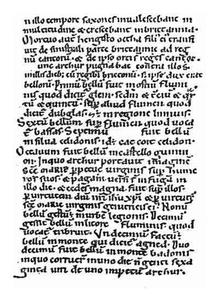 n illo tempore saxones inualescebant in
multitudine & crescebant in brittannia.
Mortuo aut hengisto octha fili ei transi
uit de sinistrali parte brittannie ad reg
nū cantorū. & de ipso orti sī reges cantoꝝ.
Tunc arthur pugnabat contra illos. in
illis dieb; cū regib; brittonū. s; ipse dux erat
bellorū. Primū bellū fuit in ostiū flumi
nis quod dicit̄ glein. scd̄m & tciū & quar
tū & quintū. sup̄ aliud flumen quod
dicit̄ dubglas. & ē in regione linnuis.
Sextū bellum sup̄ flumen quod uoca
t̄ bassas. Septimū fuit bellū
in silua celidonis. id ē cat coit celidon.
Octauum fuit bellū in castello guinni
on. Inquo arthur portauit imaginē
scē marię ppetuę uirginis sup̄ hume
ros suos. & pagani uersi sī in fuga in
illo die. & cedes magna fuit sup̄ illos.
p uirtutem dn̄i nr̄i ihū xp̄i & p uirtutē
scē marię uirginis genitricis ei. Nonū
bellū gestū ē in urbe legionis. Decimū
gessit bellū in litore fluminis quod
uocat̄ tribruit. Undecimū factū ē
bellū in monte qui dicit̄ agned. Duo
decimū fuit bellū in monte badonis.
inquo corruer̄ in uno die nongenti sexa
ginta uiri de uno impetu arthur.